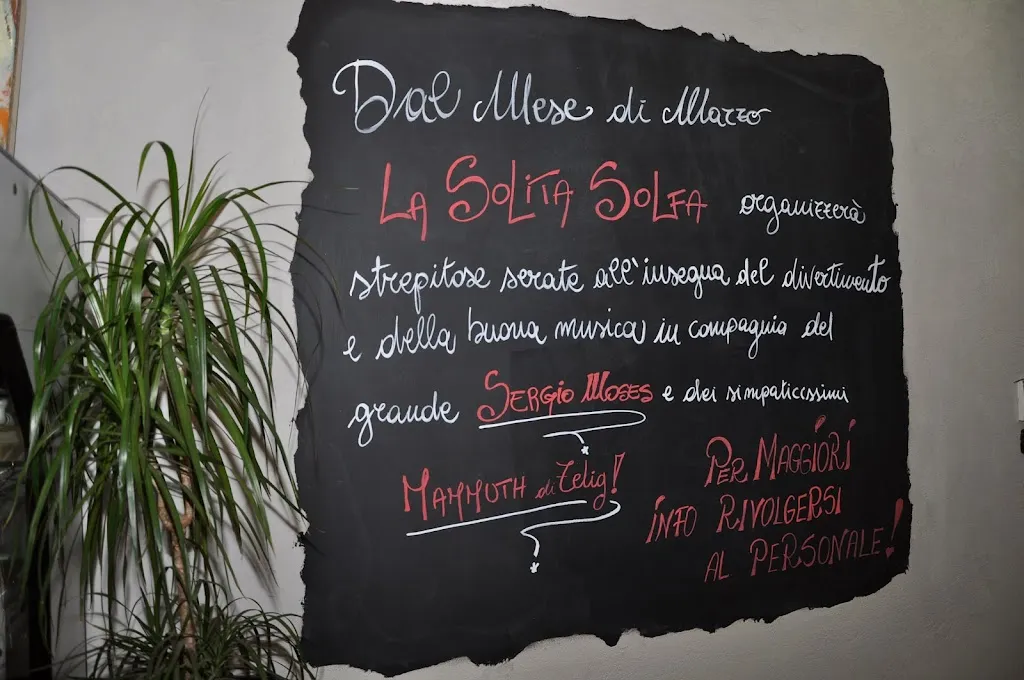 Dal Mese di Marzo
LA SOLITA SOLFA organizzerà
strepitose serate all'insegna del divertimento
e della buona musica in compagnia del
grande SERGIO MOSES e dei simpaticissimi
MAMMUTH di Zelig!
PER MAGGIORI
INFO RIVOLGERSI
AL PERSONALE!